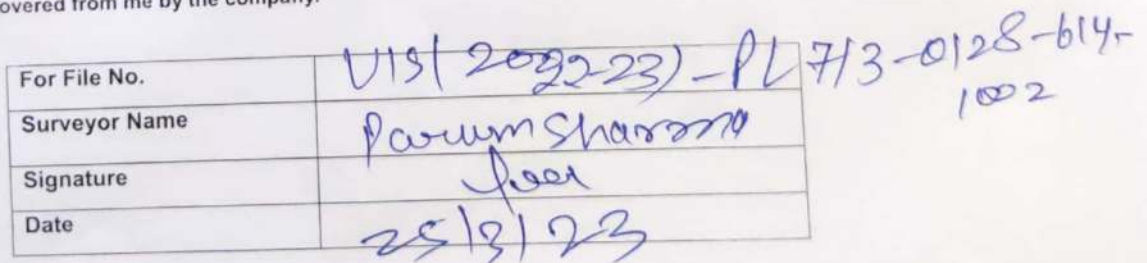 overed from me by the company.
For File No. VIS(2022-23)-PL713-0128-614-
1002
Surveyor Name Parum Sharma
Signature
Date 25/3/23